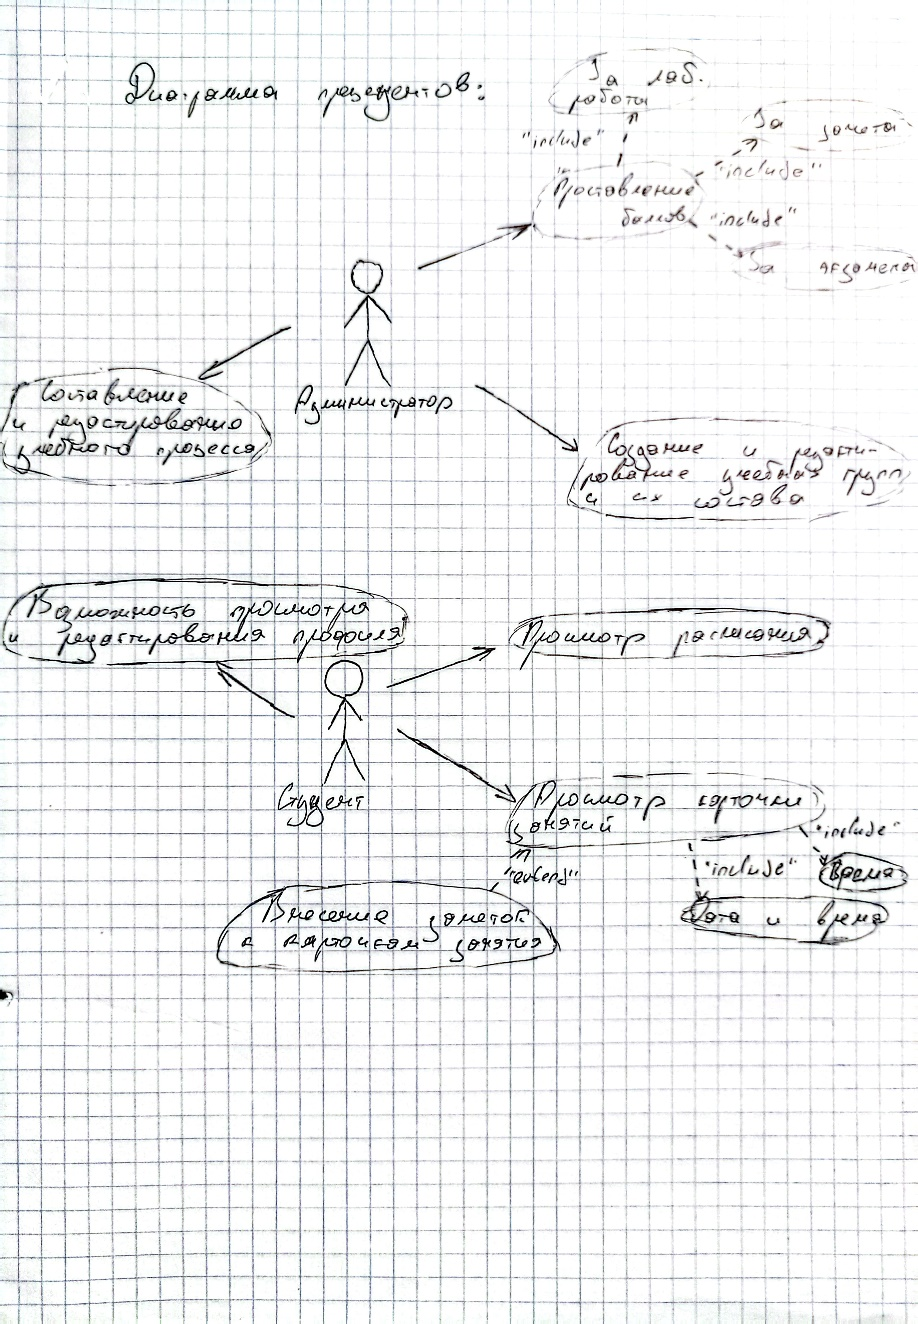 Диаграмма прецендентов:
За лаб.
работы
"include"
За зачета
"include"
Проставление
баллов
"include"
За экзамены
Администратор
Составление
и редактирование
учебного процесса
Создание и редакти-
рование учебных групп
и их состава
Возможность просмотра
и редактирования профиля
Просмотр расписания
Студент
Просмотр карточки
занятий
"include"
"include"
Время
"extend"
Дата и время
Внесение заметок
к карточкам занятия